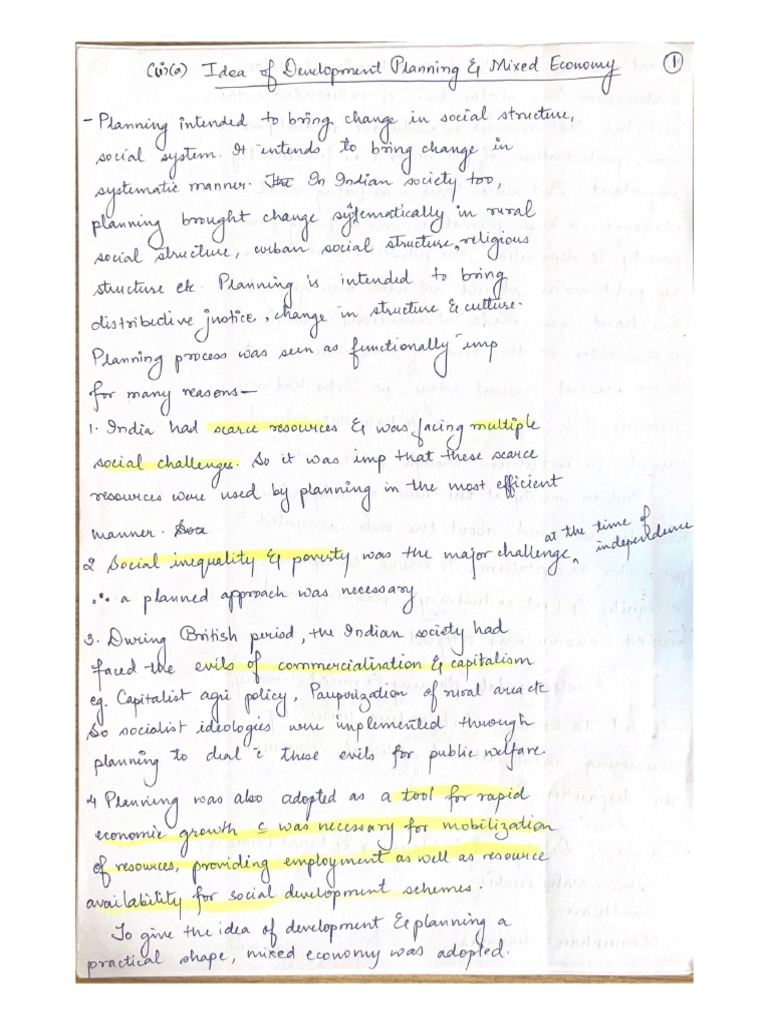 (ii)(a) Idea of Development Planning & Mixed Economy ①
- Planning intended to bring change in social structure,
social system. It intends to bring change in
systematic manner. In Indian society too,
planning brought change systematically in rural
social structure, urban social structure, religious
structure etc. Planning is intended to bring
distributive justice, change in structure & culture.
Planning process was seen as functionally imp
for many reasons—
1. India had scarce resources & was facing multiple
social challenges. So it was imp that these scarce
resources were used by planning in the most efficient
manner.
2 Social inequality & poverty was the major challenge, at the time of independence
∴ a planned approach was necessary
3. During British period, the Indian society had
faced the evils of commercialisation & capitalism
eg. Capitalist agri policy, Pauperization of rural area etc
So socialist ideologies were implemented through
planning to deal c̄ these evils for public welfare.
4 Planning was also adopted as a tool for rapid
economic growth & was necessary for mobilization
of resources, providing employment as well as resource
availability for social development schemes.
To give the idea of development & planning a
practical shape, mixed economy was adopted.